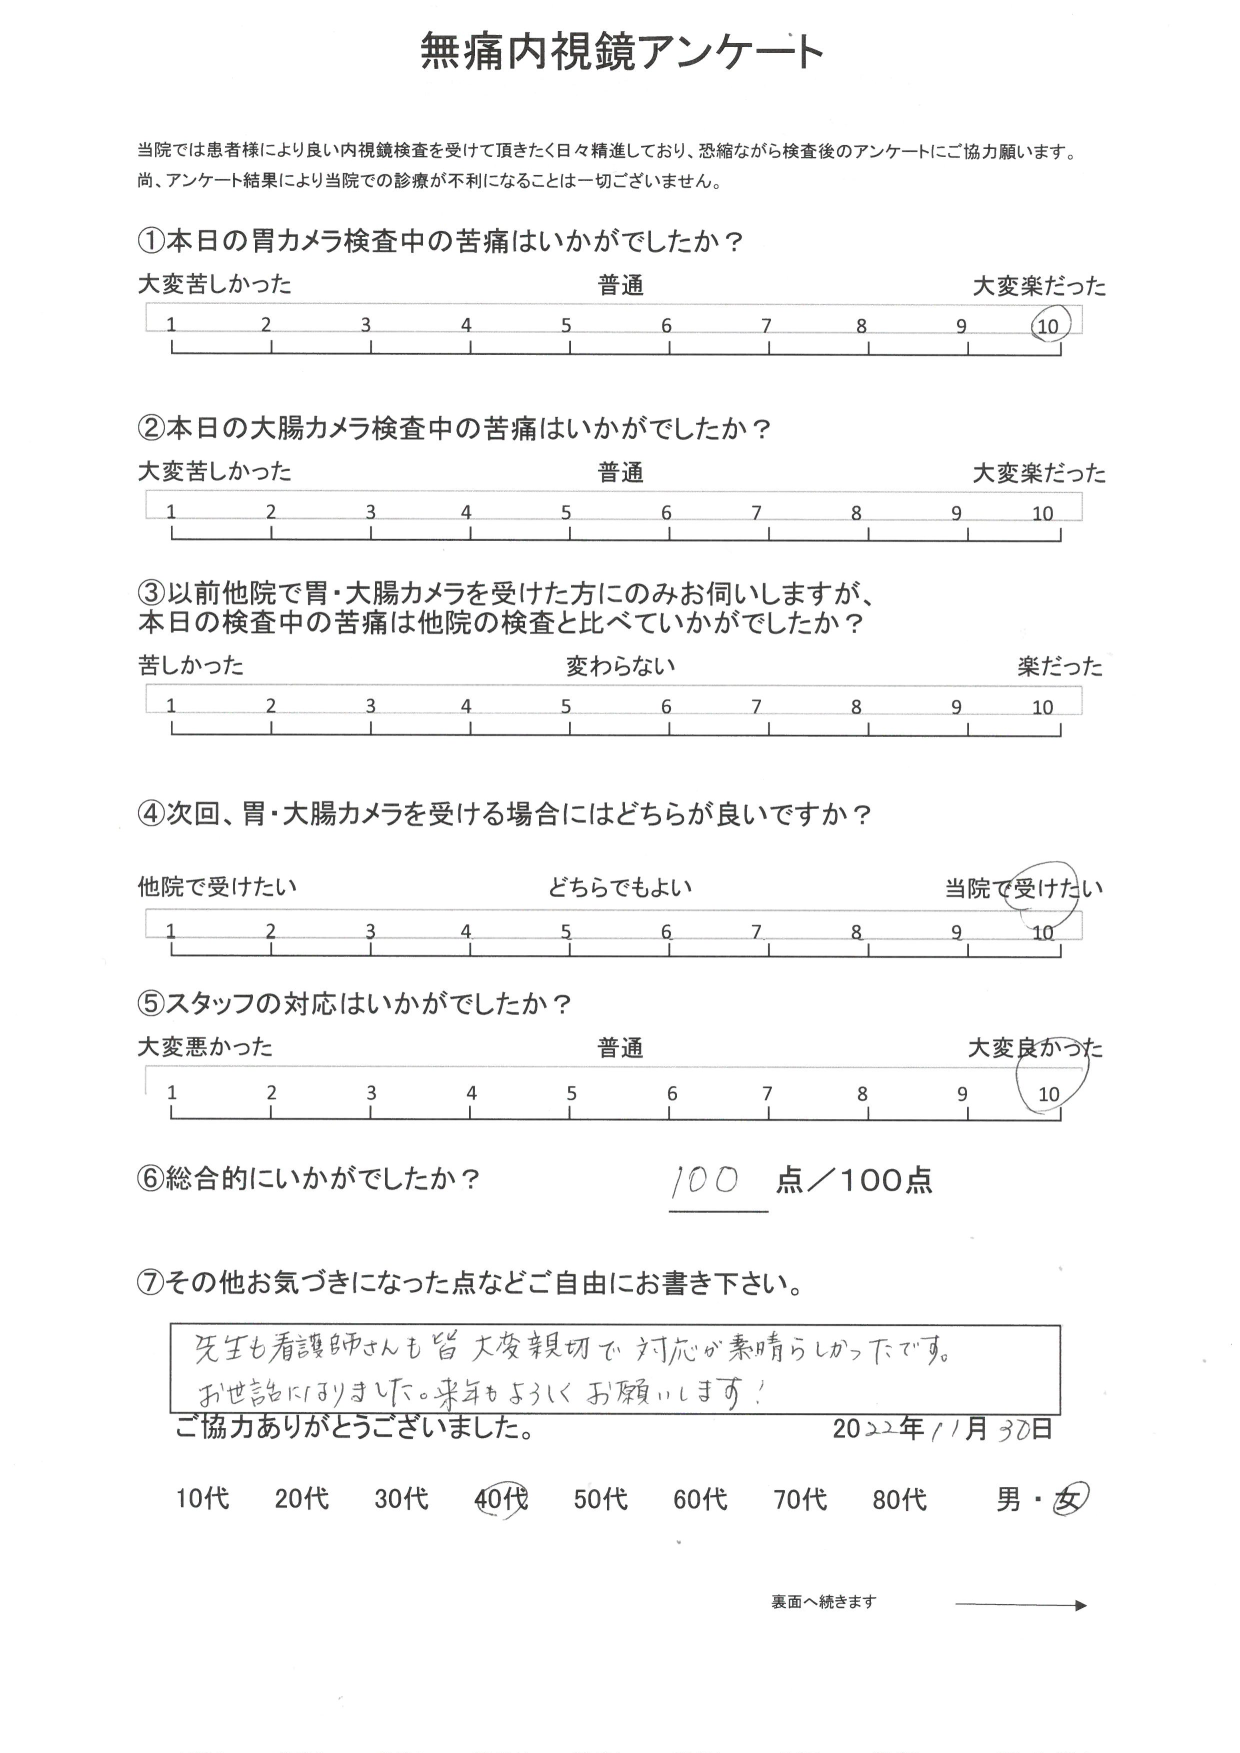 無痛内視鏡アンケート
当院では患者様により良い内視鏡検査を受けて頂きたく日々精進しており、恐縮ながら検査後のアンケートにご協力願います。
尚、アンケート結果により当院での診療が不利になることは一切ございません。
①本日の胃カメラ検査中の苦痛はいかがでしたか？
大変苦しかった 普通 大変楽だった
1 2 3 4 5 6 7 8 9 10
②本日の大腸カメラ検査中の苦痛はいかがでしたか？
大変苦しかった 普通 大変楽だった
1 2 3 4 5 6 7 8 9 10
③以前他院で胃・大腸カメラを受けた方にのみお伺いしますが、
本日の検査中の苦痛は他院の検査と比べていかがでしたか？
苦しかった 変わらない 楽だった
1 2 3 4 5 6 7 8 9 10
④次回、胃・大腸カメラを受ける場合にはどちらが良いですか？
他院で受けたい どちらでもよい 当院で受けたい
1 2 3 4 5 6 7 8 9 10
⑤スタッフの対応はいかがでしたか？
大変悪かった 普通 大変良かった
1 2 3 4 5 6 7 8 9 10
⑥総合的にいかがでしたか？ 100 点／100点
⑦その他お気づきになった点などご自由にお書き下さい。
先生も看護師さんも皆 大変親切で 対応が素晴らしかったです。
お世話になりました。来年もよろしく お願いします！
ご協力ありがとうございました。 2022年11月30日
10代 20代 30代 40代 50代 60代 70代 80代 男・女
裏面へ続きます